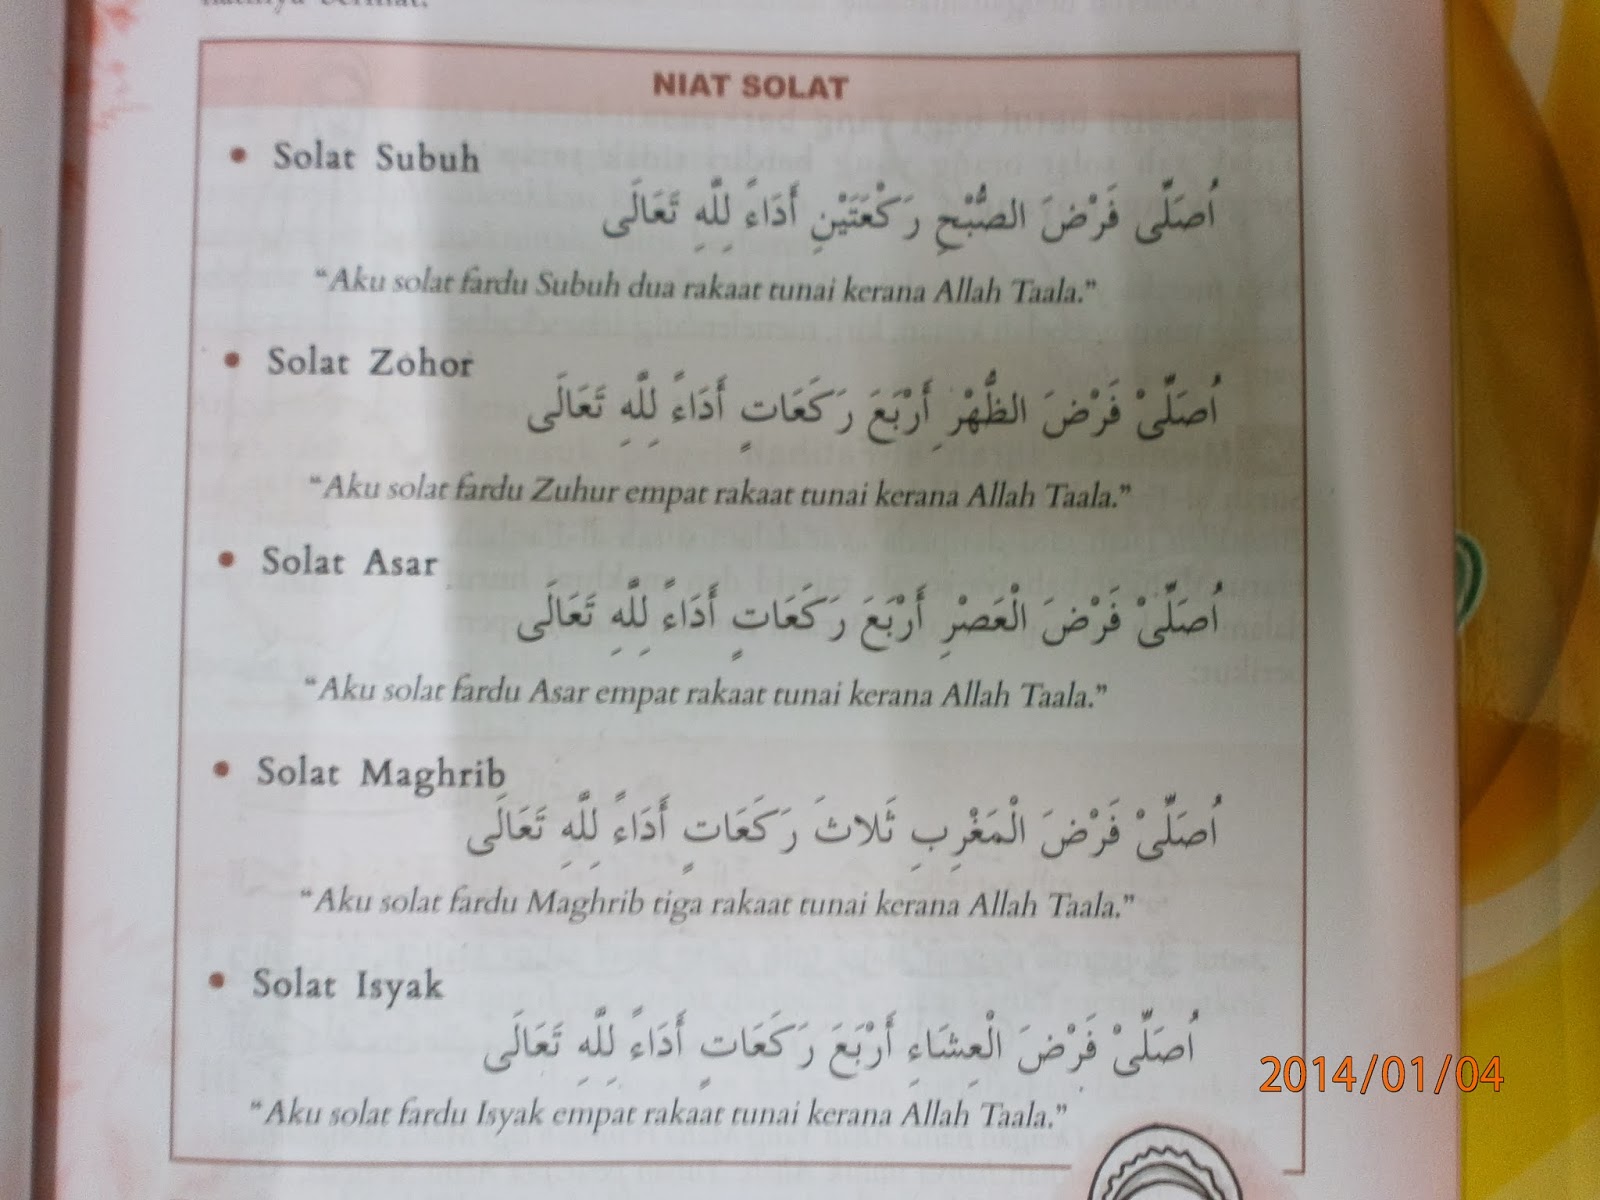 NIAT SOLAT
• Solat Subuh
اُصَلِّى فَرْضَ الصُّبْحِ رَكْعَتَيْنِ أَدَاءً لِلَّهِ تَعَالَى
“Aku solat fardu Subuh dua rakaat tunai kerana Allah Taala.”
• Solat Zohor
اُصَلِّىْ فَرْضَ الظُّهْرِ أَرْبَعَ رَكَعَاتٍ أَدَاءً لِلَّهِ تَعَالَى
“Aku solat fardu Zuhur empat rakaat tunai kerana Allah Taala.”
• Solat Asar
اُصَلِّىْ فَرْضَ الْعَصْرِ أَرْبَعَ رَكَعَاتٍ أَدَاءً لِلَّهِ تَعَالَى
“Aku solat fardu Asar empat rakaat tunai kerana Allah Taala.”
• Solat Maghrib
اُصَلِّىْ فَرْضَ الْمَغْرِبِ ثَلاثَ رَكَعَاتٍ أَدَاءً لِلَّهِ تَعَالَى
“Aku solat fardu Maghrib tiga rakaat tunai kerana Allah Taala.”
• Solat Isyak
اُصَلِّىْ فَرْضَ الْعِشَاءِ أَرْبَعَ رَكَعَاتٍ أَدَاءً لِلَّهِ تَعَالَى
“Aku solat fardu Isyak empat rakaat tunai kerana Allah Taala.”
2014/01/04